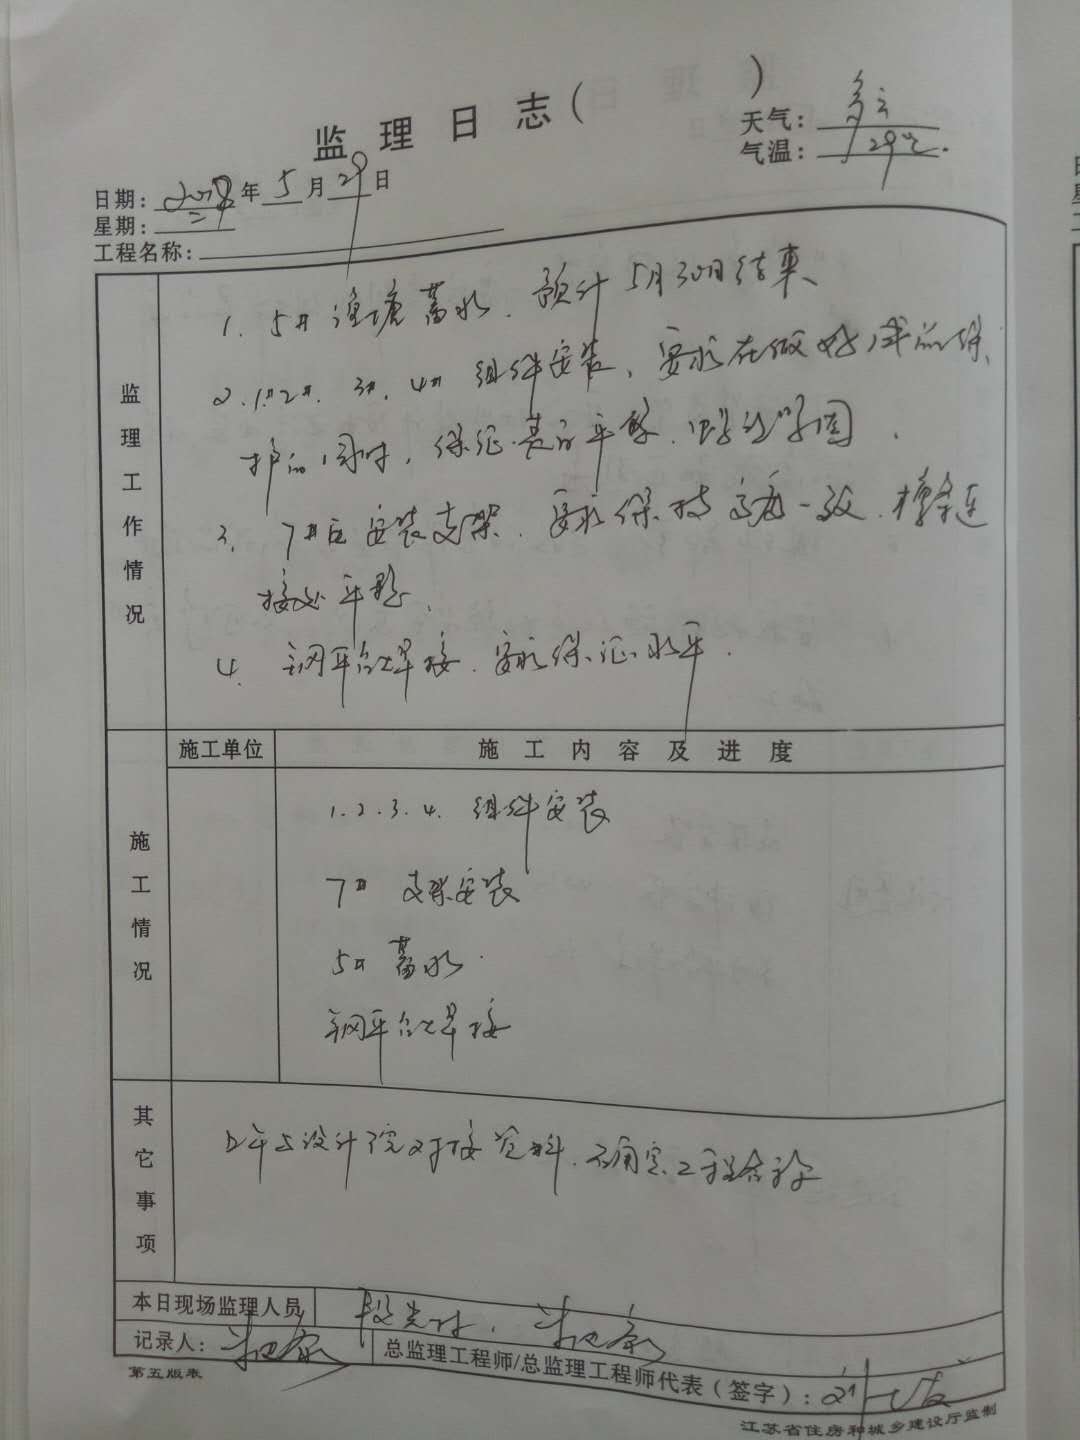 监理日志( )
天气：多云
气温：29℃.
日期：2018年5月29日
星期：二
工程名称：
监理工作情况
1. 5# 渔塘蓄水、预计5月30日结束、
2. 1# 2#、3#、4# 组件安装、要求在做好成品保
护的同时，保证其的平整、螺丝紧固.
3. 7#区安装支架、要求保持高度一致、檩条连
接处平整、
4. 钢平台焊接、要求保证水平.
施工情况
施工单位 施工内容及进度
1.2.3.4. 组件安装
7# 支架安装
5# 蓄水.
钢平台焊接
其它事项
与设计院对接资料、
本日现场监理人员
记录人： 总监理工程师/总监理工程师代表（签字）：
第五版表
江苏省住房和城乡建设厅监制